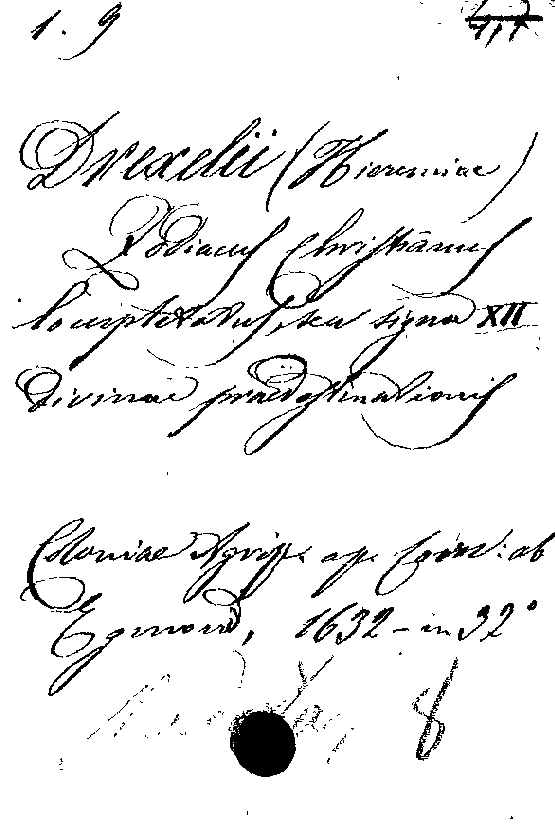 1. 9
Drexelii (Hieremiae)
Zodiacus Christianus
locupletatus, seu signa XII
Divinae praedestinationis
Coloniae Agripp. ap. Corn: ab
Egmond, 1632 - in 32°
8